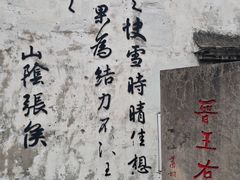 快雪時晴佳想
果為結力不次王
山陰張侯
晋王右